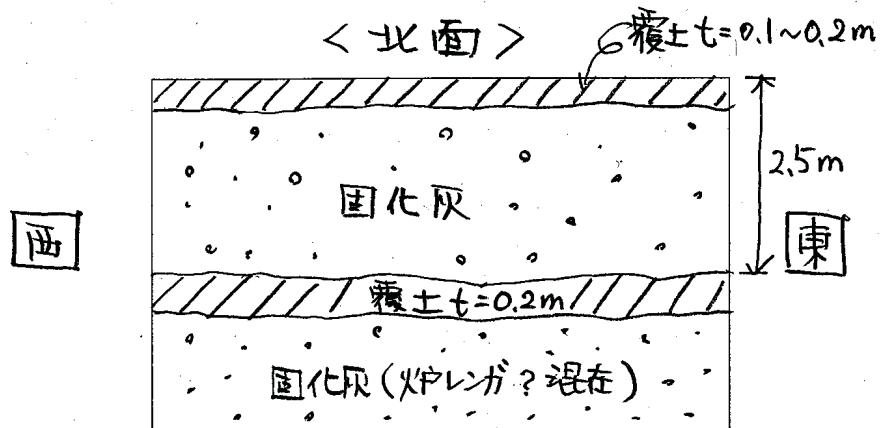 <北面>
覆土 t=0.1~0.2m
2.5m
固化灰
西
東
覆土 t=0.2m
固化灰(炉レンガ?混在)